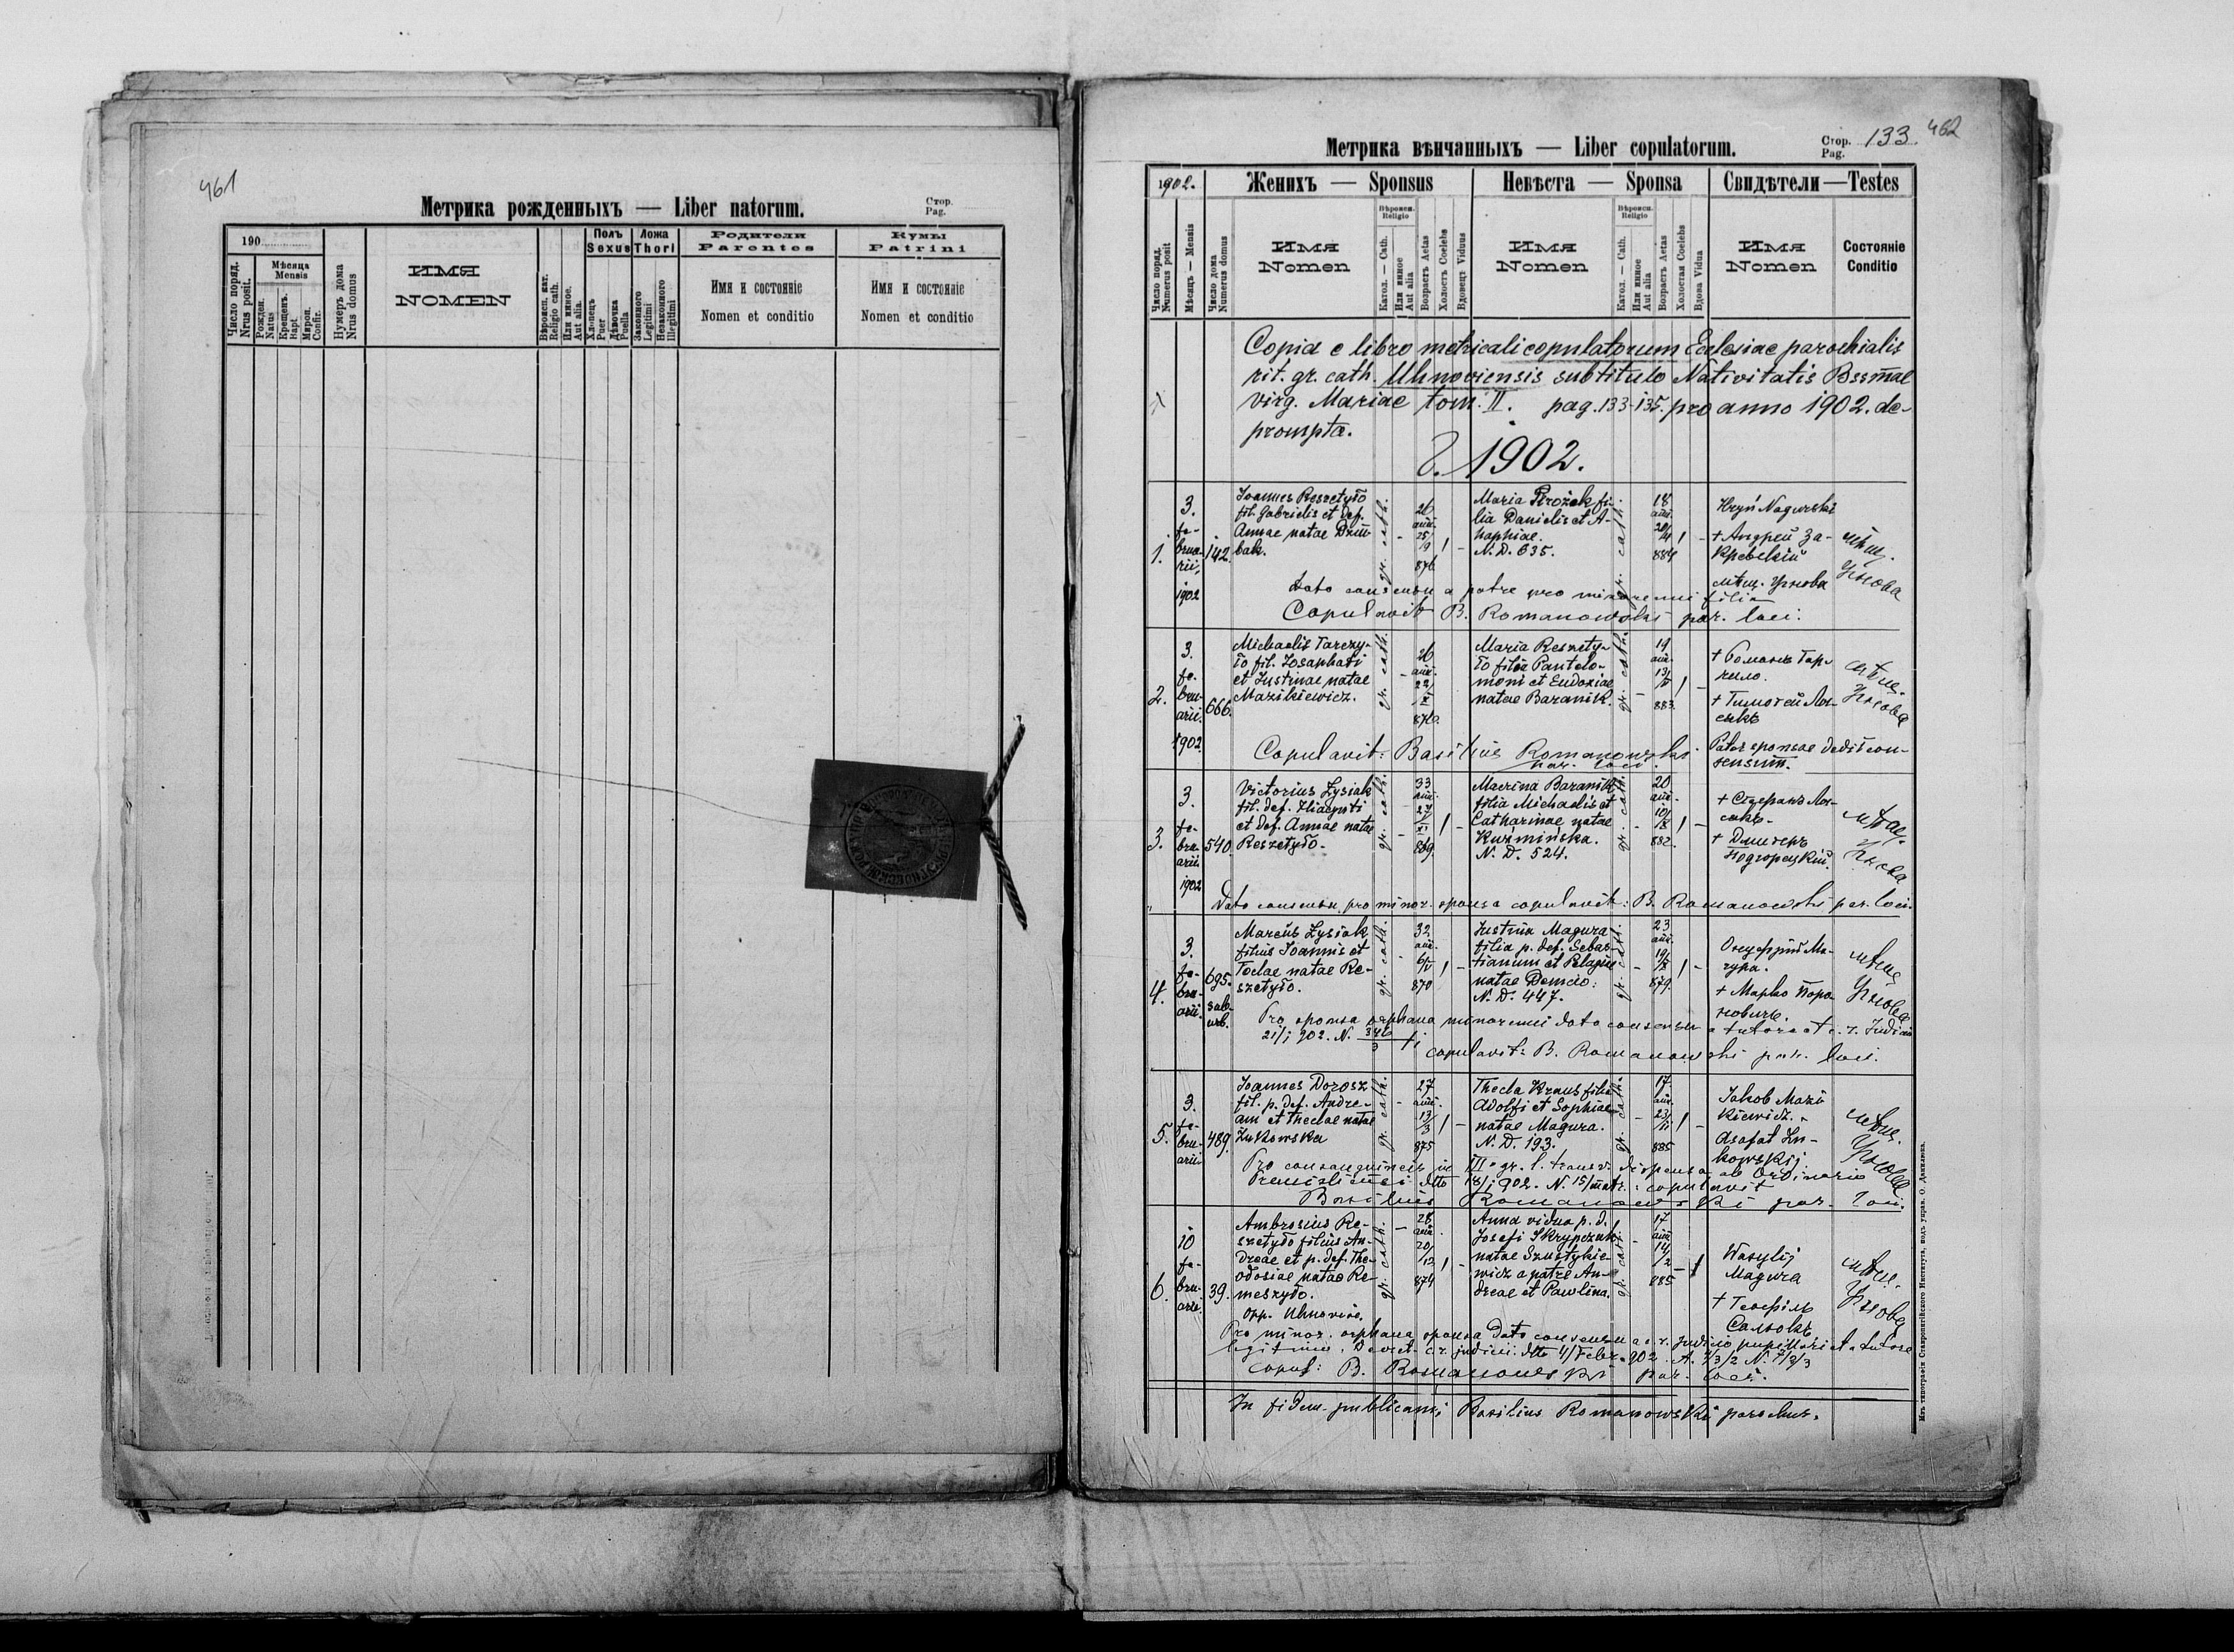 461
Метрика рожденныхъ — Liber natorum.
Стор.
Pag.
190
Число поряд.
Nrus posit.
Мѣсяца
Mensis
Рожден.
Natus
Крещенъ.
Bapt.
Мѵроп.
Confir.
Нумеръ дома
Nrus domus
ИМЯ
NOMEN
Вѣроисп. кат.
Religio cath.
Или иное.
Aut alia.
Полъ
Sexus
Хлопецъ
Puer
Дѣвочка
Puella
Ложа
Thori
Законного
Legitimi
Незаконного
Illegitimi
Родители
Parentes
Имя и состояніе
Nomen et conditio
Кумы
Patrini
Имя и состояніе
Nomen et conditio
Метрика вѣнчанныхъ — Liber copulatorum.
Стор.
Pag.
133
462
1902.
Женихъ — Sponsus
Невѣста — Sponsa
Свидѣтели — Testes
Число поряд.
Numerus posit
Мѣсяцъ — Mensis
Число дома
Numerus domus
Имя
Nomen
Вѣроисп.
Religio
Катол. — Cath.
Или иное
Aut alia
Возрастъ Aetas
Холостъ Coelebs
Вдовецъ Viduus
Имя
Nomen
Вѣроисп.
Religio
Катол. — Cath.
Или иное
Aut alia
Возрастъ Aetas
Холостая Coelebs
Вдова Vidua
Имя
Nomen
Состояніе
Conditio
Copia e libro metricali copulatorum Eclesiae parochialis
rit. gr. cath. Uhnoviensis sub titulo Nativitatis Bssmae
virg. Mariae tom. II. pag. 133-135. pro anno 1902. de-
prompta.
1902.
1.
3.
fe-
brua-
rii,
1902
142.
Ioannes Reszetyło
fil. Gabrielis et def.
Annae natae
bak.
gr. cath.
26
ann.
25/9
876
Maria Prożek fi-
lia Danielis et A-
naphiae.
N. D. 635.
gr. cath.
18
ann.
884
Hryń Nagurski
+ Андрей За-
кревскій
мѣщ. Угнова
мѣщ.
Угнова
Dato consensu a patre pro minorenni filia
Copulavit B. Romanowski par. loci.
2.
3.
fe-
bru-
arii.
1902
666.
Michaelis Tarczy-
ło fil. Iosaphati
et Iustinae natae
Mazikiewicz.
gr. cath.
26
ann.
876.
Maria Reszety-
ło filia Pantelo-
moni et Eudoxiae
natae Baranik.
gr. cath.
19
ann.
883.
+ Романъ Тар-
чило.
+ Тимотей Ли-
сякъ
мѣщ.
Угнова
Copulavit: Basilius Romanowski
par. loci.
Pater sponsae dedit con-
sensum.
3.
3.
fe-
bru-
arii
1902
540.
Victorius Łysiak
fil. def. Hiacynti
et def. Annae natae
Reszetyło.
gr. cath.
33
ann.
869.
Macrina Baranik
filia Michaelis et
Catharinae natae
Kuźmińska.
N. D. 524.
gr. cath.
20
ann.
882.
+ Стефанъ Ли-
сякъ
+ Дмитеръ
Подгорецкій.
мѣщ.
Угнова
Dato consensu pro minor. sponsa copulavit: B. Romanowski par. loci.
4.
3.
fe-
bru-
arii.
695.
sub-
urb.
Marcus Łysiak
filius Ioannis et
Teclae natae Re-
szetyło.
gr. cath.
32
ann.
870
Iustina Magura
filia p. def. Sebas-
tianum et Pelagiae
natae Demcio:
N. D. 447.
gr. cath.
23
ann.
879.
Онуфрій Ма-
гура.
+ Марко
мѣщ.
Угнова
Pro sponsa orphana minorenni dato consensu a tutore et c. r. Iudicii
21/I 902. N.
copulavit: B. Romanowski par. loci.
5.
3.
fe-
bru-
arii
489.
Ioannes Dorosz
fil. p. def. Andre-
am et Theclae natae
Żukowska
gr. cath.
27
ann.
13/3
875
Thecla Kraus filia
Adolfi et Sophiae
natae Magura.
N. D. 193.
gr. cath.
17
ann.
885
Jakob Mazi-
kiewicz.
Asafat Żu-
kowskij
мѣщ.
Угнова
Pro consanguineis in III gr. l. transv. dispensa ab Ordinario
dtto 18/I 902. N. 15/matr: copulavit
Basilius Romanowski par. loci.
6.
10
fe-
bru-
arii.
39.
Ambrosius Re-
szetyło filius An-
dreae et p. def. The-
odosiae natae Re-
meszyło.
Opp. Uhnoviae.
gr. cath.
28
ann.
20/12
874
Anna vidua p. d.
Josefi Skrypczuk
natae Szustykie-
wicz a patre An-
dreae et Pawlina.
gr. cath.
17
ann
14/2
885
Wasylij
Magura
+ Теофіль
Салюкъ
мѣщ.
Угнова
Pro minor. orphana sponsa dato consensu a c. r. judicio pupillari et a tutore
legitimo. Decret. c. r. judicii. dtto 4/Febr. 902. A. 7/3/2 N. 7/9/3
copul: B. Romanowski par. loci.
In fidem publicam; Basilius Romanowski parochus.
Изъ типографіи Ставропигійского Института, подъ управ. О. Данилюка.